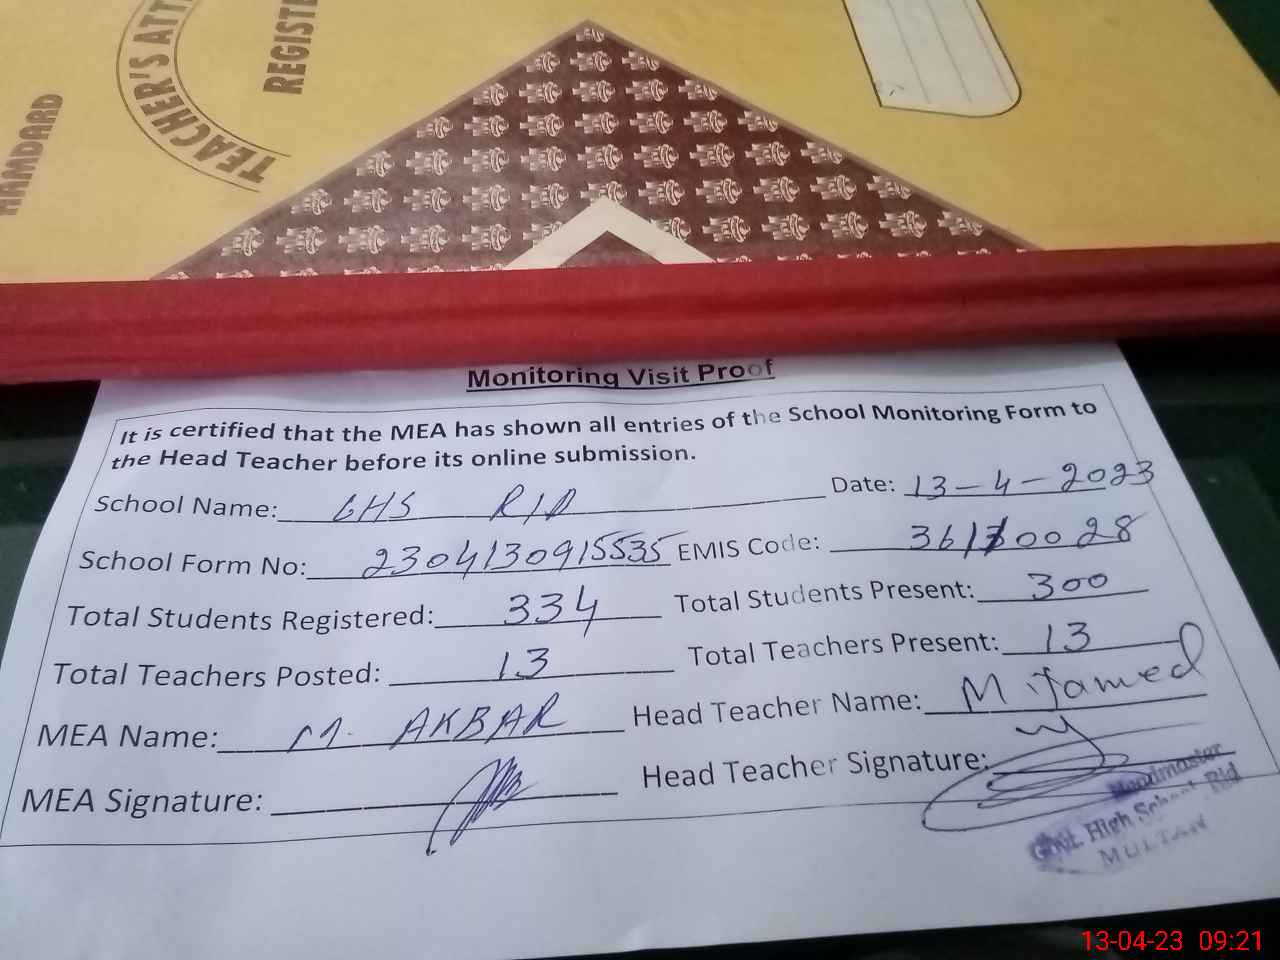 HAMDARD
TEACHER'S ATT
REGISTE
Monitoring Visit Proof
It is certified that the MEA has shown all entries of the School Monitoring Form to
the Head Teacher before its online submission.
School Name: GHS RID Date: 13-4-2023
School Form No: 2304130915535 EMIS Code: 36130028
Total Students Registered: 334 Total Students Present: 300
Total Teachers Posted: 13 Total Teachers Present: 13
MEA Name: M. AKBAR Head Teacher Name: M
MEA Signature: Head Teacher Signature:
Headmaster
Govt. High School Rid
MULTAN
13-04-23 09:21